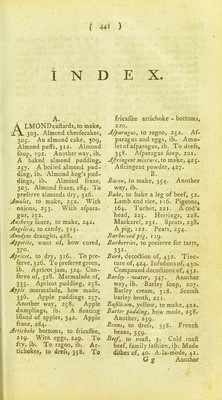 ( 441 )
INDEX.
A.
ALMOND custards, to make,
303. Almond cheesecakes,
305. An almond cake, 309,
Almond puffs, 312. Almond
soup, 192. Another way, ib.
A baked almond pudding,
257. A boiled almond pud-
ding, ib. Almond hog's pud-
dings, ib. Almond fraze,
303. Almond fraze, 284. To
preserve almonds dry, 326.
Amulet, to make, 252. With
onions, 253. With aspara-
gus, 252.
Anchovy sauce, to make, 242.
Angelica, to candy, 315.
Anodyne draught, 408.
Appetite, want of, how cured,
370.
Apricot, to dry, 316. To pre-
serve, 326. To preserve green,
ib. Apricot jam, 324. Con-
serve of, 328. Marmalade of,
335. Apricot pudding, 258.
Apple marmalade, how made,
336. Apple puddings 257.
Another way, 258. Apple
dumplings, ib. A floating
island of apples, 342. Apple
fraze, 284.
Artichoke bottoms, to fricassee,
219. With eggs, 249. To
fry, ib. To ragoo, ib. Ar-
tichokes, to dress, 358. To
fricassee artichoke - bottoms,
220.
Asparagus, to ragoo, 252. As-
paragus and eggs, ib. Amu-
let of asparagus, ib. To dress,
358. Asparagus soup, 201.
Astringent mixture, to make, 425.
Astringent powder, 427.
B.
Bacon, to make, 354. Another
way, ib.
Bake, to bake a leg of beef, 51.
Lamb and rice, 116. Pigeons,
164. Turbot, 221. A cod's
head, 225. Herrings, 228.
Mackarel, 231. Sprats, 238.
A pig, 122. Pears, 254.
Barbacued pig, 119.
Barberries, to preserve for tarts,
331.
Bark, decoction of, 432. Tinc-
ture of, 424. Infusions of, 430.
Compound decoctions of, 432.
Barley-water, 347. Another
way, ib. Barley soup, 207.
Barley cream, 318. Scotch
barley broth, 211.
Basilicum, yellow, to make, 422.
Batter pudding, how made, 258.
Another, 259.
Beans, to dress, 358. French
beans, 359.
Beef, to roast, 3. Cold roast
beef, family fashion, ib. Made
dishes of, 40. A-la-mode, 41.
G g Another